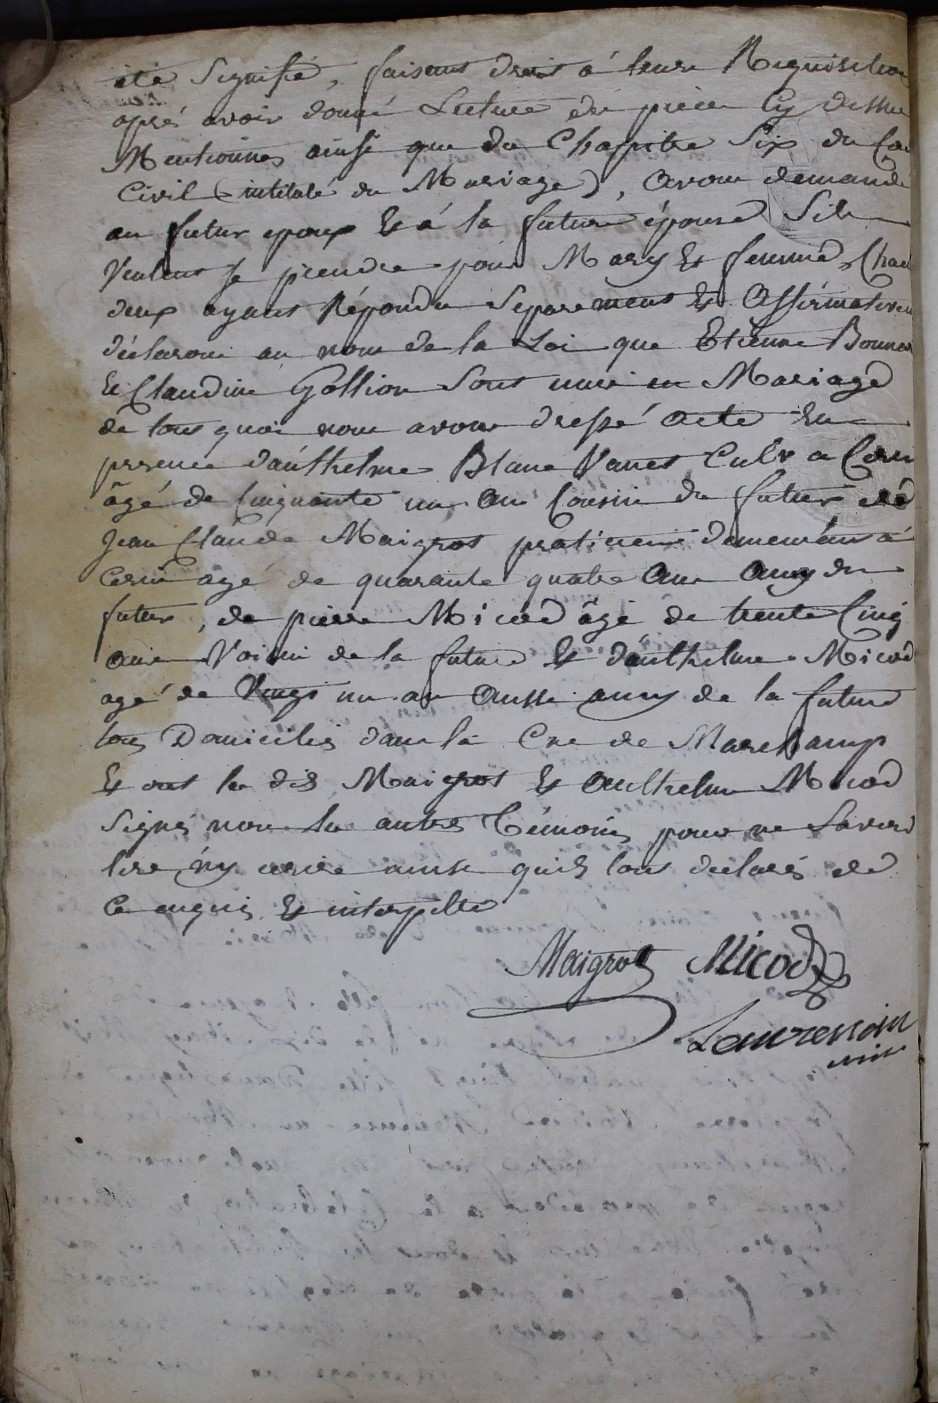 été Signifié, faisant droit á leure Requisition
aprés avoir donné Lecture de piece Cy dessu
Mentionnés ainsi que du Chapitre Six du Co
Civil (intitulé du Mariage), avons demandé
au futur epoux Et á la future épouse Sils
Veulent se prendre pour Mary Et femme, Chac
deux ayant Répondu Separement Et Affirmativem
déclarons au nom de la Loi que Etienne Bonne
Et Claudine Gollion Sont unis en Mariage
de tous quoi nous avons dressé acte En
presence d'aúthelme Blanc Vanet Culr a Cer
âgé de Cinquante un an Cousin du futur de
Jean Claude Maigrot praticien demeurant á
Cerin âgé de quarante quatre Ans Amy du
futur, de pierre Micod âgé de trente Cinq
ans Voisin de la future Et d'aúthelme Micod
agé de Vingt un an Aussi amy de la future
tous Domiciliés dans la Cne de Marchamp
Et ont les dis Maigrot Et Authelme Micod
Signés non les autres Témoins pour ne Savoir
lire n'y ecrire ainsi quils Lont declarés de
Ce enquis Et interpellé
Maigrot Micod
Laurencin